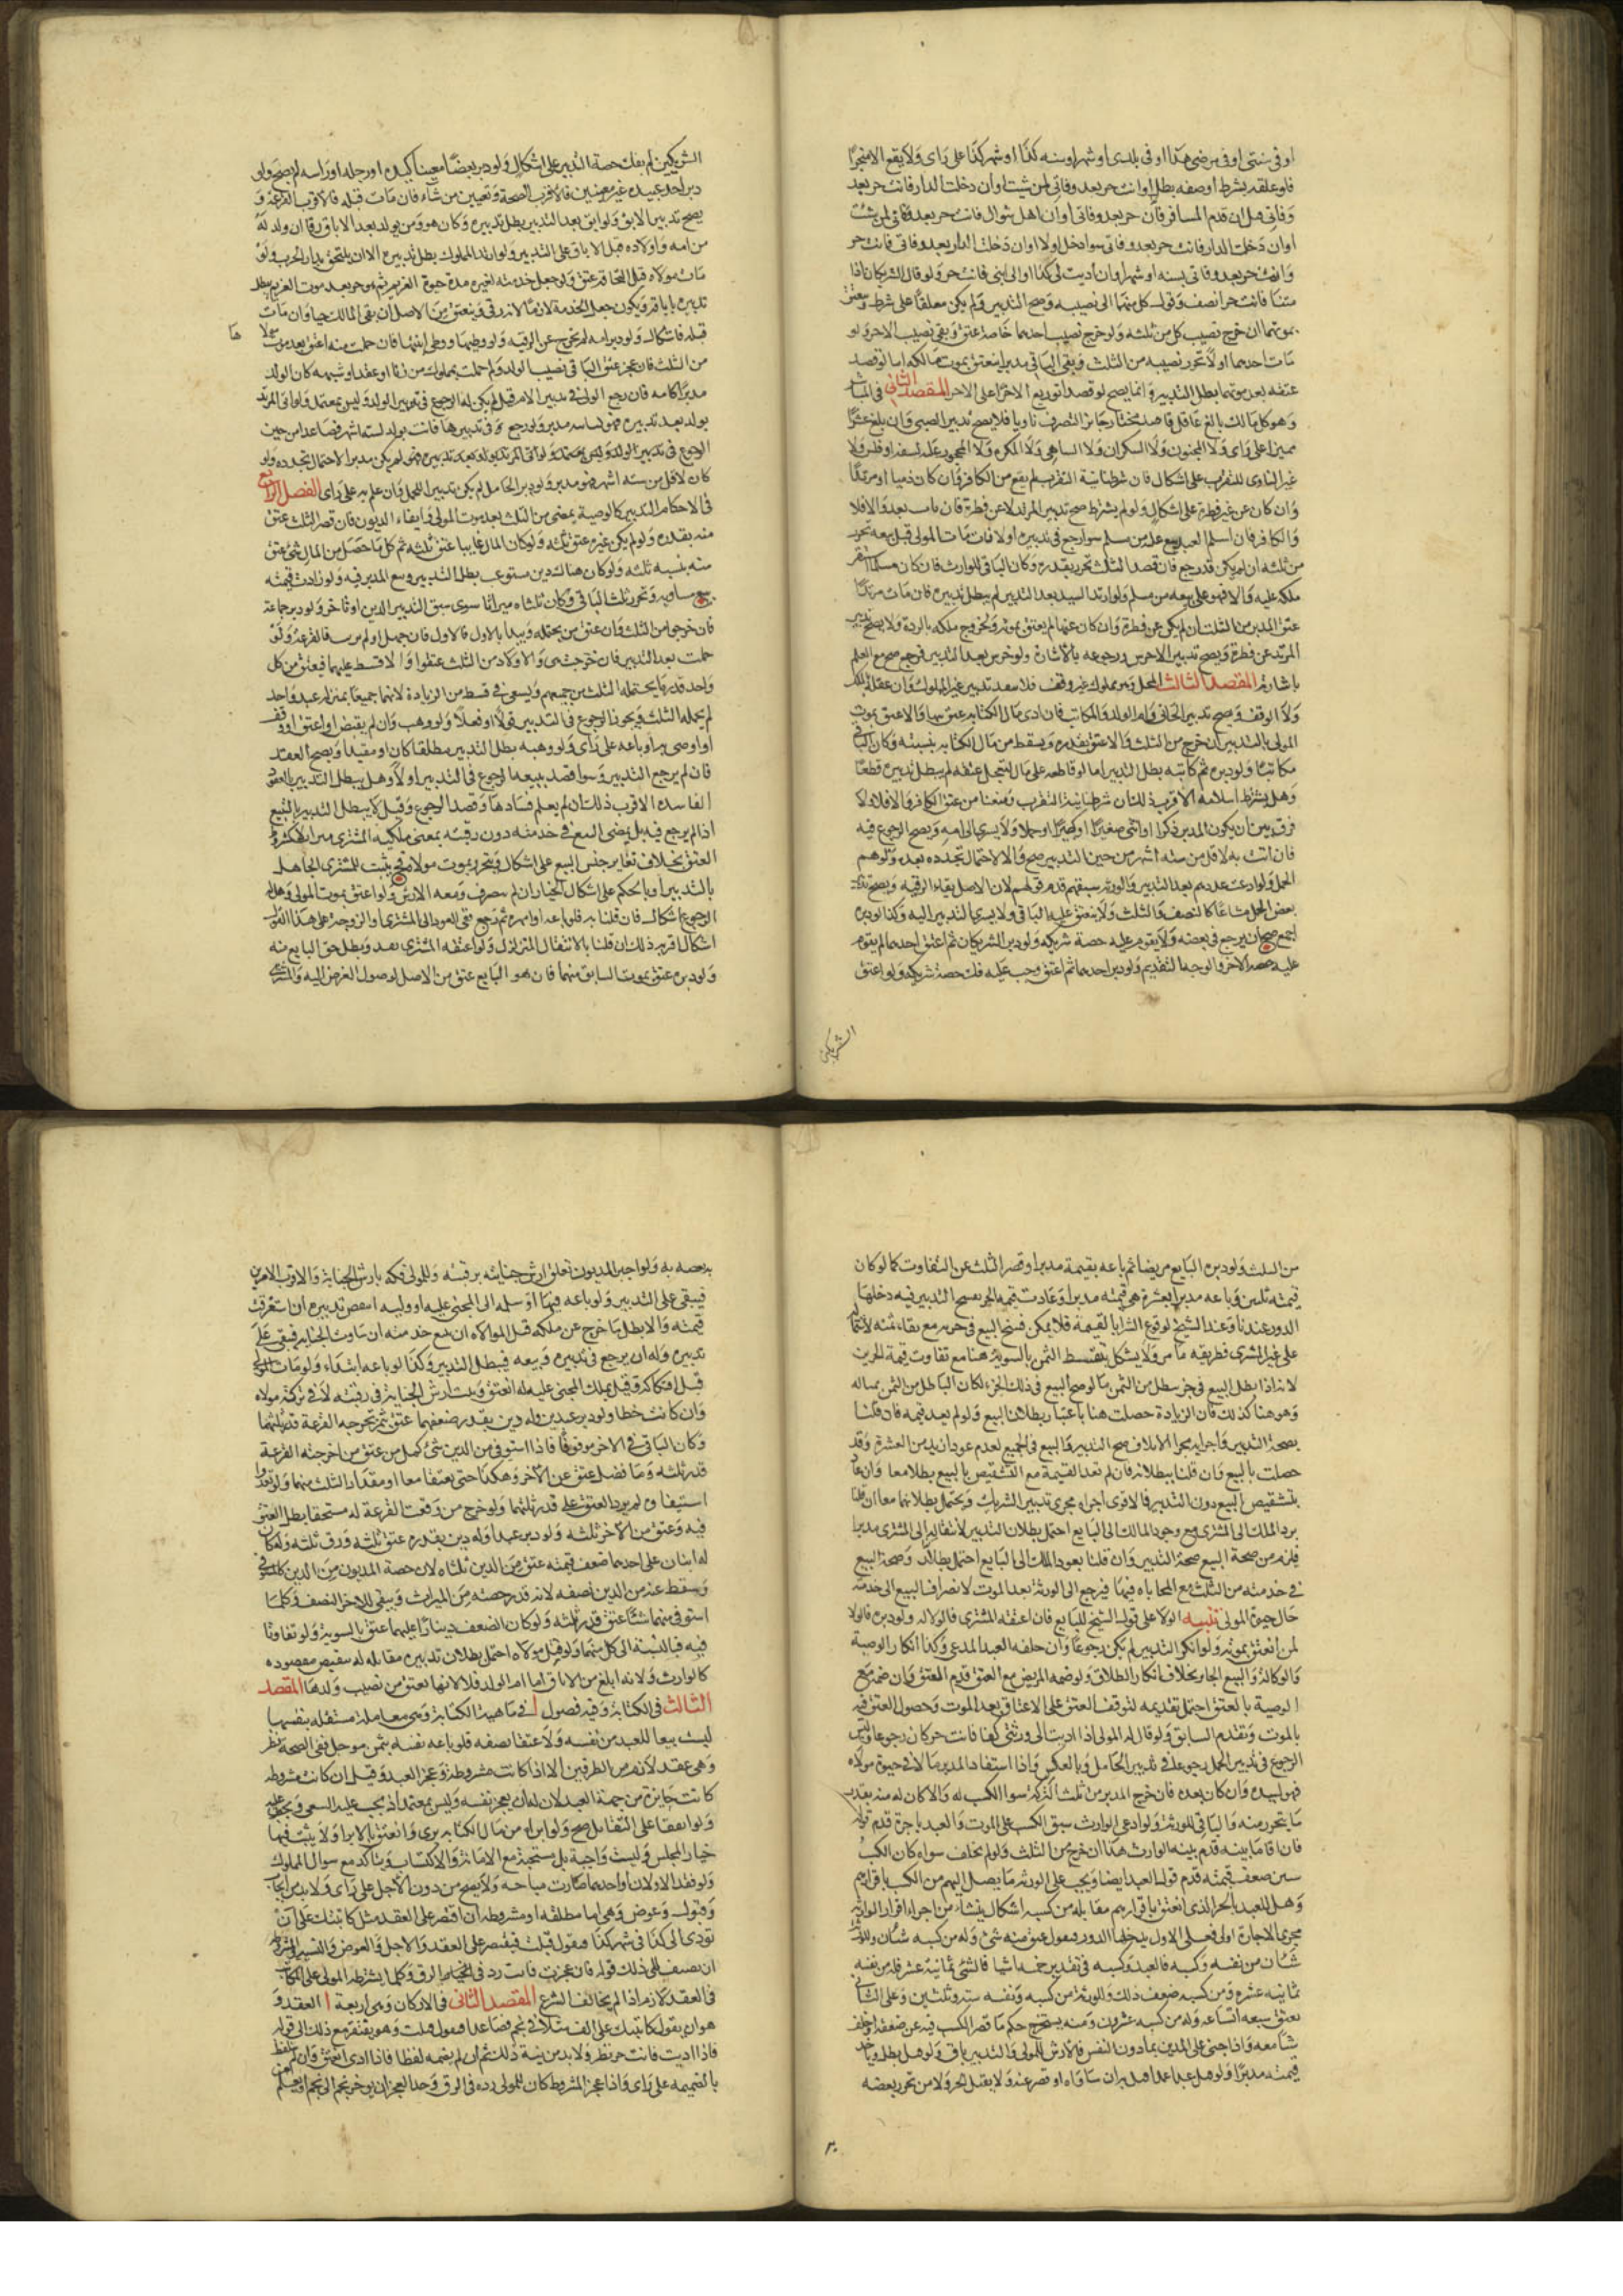 او في سنتي او في مرضي هذا او في بلدي او شهر او سنه كذا او شهر كذا على راى ولا يقع الا منجزا
فلو علقه بشرط او صفه بطل او انت حر بعد وفاتي ان شئت او ان دخلت الدار فانت حر بعد
وفاتي هل ان قدم المسافر فان حر بعد وفاتي او ان اهل شوال فانت حر بعد وفاتي ان شئت
او ان دخلت الدار فانت حر بعد وفاتي سوا دخل اولا او ان دخلت الدار بعد وفاتي فانت حر
وانت حر بعد وفاتي بسنه او شهر او ان اديت الى كذا او الى ابني فانت حر ولو قال الشريكان اذا
متنا فانت حر انصف وقول كل منهما الى نصيبه وصح التدبير ولم يكن معلقا على شرط وينعتق
بموتهما ان خرج نصيب كل من ثلثه ولو خرج نصيب احدهما خاصة عتق وبقى نصيب الاخر ولو
مات احدهما اولا تحرر نصيبه من الثلث وبقى الباقي مدبرا ينعتق بموت مالكه اما لو قصد
عتقه بعد موتهما بطل التدبير وانما يصح لو قصدا توزيع الاجزا على الاجزا المقصد الثاني في المباشر
وهو كل مالك بالغ عاقل قاصد مختار جائز التصرف ناويا فلا يصح تدبير الصبي وان بلغ عشرا
مميزا على راى ولا المجنون ولا السكران ولا الساهي ولا المكره ولا المحجور عليه لسفه او فلس ولا
غير الناوى للتقرب على اشكال فان شرطنا نية التقرب لم يقع من الكافر وان كان ذميا او مرتدا
وان كان عن غير فطرة على اشكال ولو لم يشترط صح تدبير المرتد لا عن فطرة فان تاب نفذ والا فلا
والكافر فان اسلم العبد بيع عليه من مسلم سوا رجع في تدبيره او لا فان مات المولى قبل بيعه تحرر
من ثلثه ان لم يكن قد رجع فان قصر الثلث تحرر بقدره وكان الباقي للوارث فان كان مسلما استقر
ملكه عليه والا قهر على بيعه من مسلم ولو ارتد السيد بعد التدبير لم يبطل تدبيره فان مات مرتدا
عتق المدبر من الثلث ان لم يكن عن فطرة وان كان عنها لم ينعتق بموته لخروج ملكه بالردة ولا يصح تدبير
المرتد عن فطرة ويصح تدبير الاخرس ورجوعه بالاشارة ولو خرس بعد التدبير فرجع صح مع العلم
باشارته المقصد الثالث المحل وهو مملوك غير وقف فلا ينفذ تدبير غير المملوك وان علقه بالملك
ولا الوقف ويصح تدبير الجاني وام الولد والمكاتب فان ادى مال الكتابه عتق بها والا عتق بموت
المولى بالتدبير ان خرج من الثلث والا عتق بقدره وسقط من مال الكتابه بنسبته وكان الباقي
مكاتبا ولو دبره ثم كاتبه بطل التدبير اما لو قاطعه على مال لتعجل عتقه لم يبطل تدبيره قطعا
وهل يشترط اسلامه الاقرب ذلك ان شرطنا نية التقرب ومنعنا من عتق الكافر والا فلا ولا
فرق بين ان يكون المدبر ذكرا او انثى صغيرا او كبيرا او حملا ولا يسرى الى امه ويصح الرجوع فيه
فان اتت به لاقل من سته اشهر من حين التدبير صح والا لا لاحتمال تجدده بعده ولو هم
الحمل ولو ادعت عدمه بعد التدبير والورثه سبقه قدم قولهم لان الاصل بقاء الرقيه ويصح تدبير
بعض المحل مشاعا كالنصف والثلث ولا ينعتق عليه الباقي ولا يسرى التدبير اليه وكذا لو دبره
اجمع صح ان يرجع في بعضه ولا يقوم عليه حصة شريكه ولو دبر الشريكان ثم اعتق احدهما لم يقوم
عليه حصة الاخر والوجه التقديم ولو دبر احدهما ثم اعتق وجب عليه فك حصة شريكه ولو اعتق
الشريكين
الشريكين لم يفك حصة التدبير على اشكال ولو دبر بعضا معينا كيده او رجله او راسه لم يصح ولو
دبر احد عبيده غير معينين فالاقرب الصحة وتعيين من شاء فان مات قبله فالاقرب القرعة و
يصح تدبير الابق ولو ابق بعد التدبير بطل تدبيره وكان هو ومن يولد بعد الاباق رقا ان ولد له
من امه واولاده قبل الاباق على التدبير ولو ارتد المملوك بطل تدبيره الا ان يلتحق بدار الحرب ولو
مات مولاه قبل التحاقه عتق ولو جعل خدمته لغيره مدة حيوة الغير ثم هو حر بعد موت الغير بطل
تدبيره باباقه ويكون جعل الخدمة لازما لا رزقي وينعتق من الاصل ان بقى المالك حيا وان مات
قبله فاشكال ولو دبر امه لم تخرج عن الرقيه وله وطيها ووطى ابنتها فان حملت منه اعتق بعد موت مولاها
من الثلث فان عجز عتق الباقي نصيب الولد ولم حملت بمملوك من زنا او عقد او شبهه كان الولد
مدبرا كامه فان رجع المولى في تدبير الام قيل لم يكن له الرجوع في تدبير الولد وليس بمعتمد ولو اتى المرتد
بولد بعد تدبيره فهو لسيده مدبر ولو رجع في تدبيرها فاتت بولد لسته اشهر فصاعدا من حين
الرجوع في تدبير الولد وليس بمعتمد ولو اتى المرتد بولد بعد تدبيره فهو لم يكن مدبرا لاحتمال تجدده ولو
كان لاقل من سته اشهر فهو مدبر ولو دبر الحامل لم يكن تدبيرا للحمل وان علم به على راى الفصل الرابع
في الاحكام التدبير كالوصية يمضي من الثلث بعد موت المولى وايفاء الديون فان قصر الثلث عتق
منه بقدره ولو لم يكن غيره عتق ثلثه ولو كان المال غايبا عتق ثلثه ثم كل ما حصل من المال شي عتق
منه بنسبه ثلثه ولو كان هناك دين مستوعب بطل التدبير وبيع المدبر فيه ولو زادت قيمته
بيع مساويه وتحرر ثلث الباقي وكان ثلثاه ميراثا سوى سبق التدبير الدين او تاخر ولو دبر جماعة
فان خرجوا من الثلث والا عتق من يحتمله ويبدا بالاول فالاول فان جهل او لم يرتب فالقرعة ولو
حملت بعد التدبير فان خرجت هي والاولاد من الثلث عتقوا والا قسط عليهما فيعتق من كل
واحد قدر ما يحتمله الثلث من جميعهم ويسعى في قسط من الزيادة لانهما جميعا بمنزله عبد واحد
لم يحمله الثلث ويجوز الرجوع في التدبير قولا او فعلا ولو وهب وان لم يقبض او اعتق او وقف
او اوصى به او باعه على راى ولو وهبه بطل التدبير مطلقا كان او مقيدا ويصح العقد
فان لم يرجع التدبير وسوا قصد ببيعه الرجوع في التدبير او لا وهل يبطل التدبير بالعقود
الفاسده الاقرب ذلك ان لم يعلم فسادها وقصد الرجوع وقيل لا يبطل التدبير بالبيع
اذا لم يرجع فيه بل يمضى البيع في خدمته دون رقبته بمعنى ملكيه المشترى ميرا الاكسر و
العتق بخلاف تغاير جنس البيع على اشكال ويتحرر بموت مولاه فح يثبت للمشترى الجاهل
بالتدبير او بالحكم على اشكال الخيار ان لم يتصرف ومعه الارش ولو اعتق بموت المولى وهل له
الرجوع اشكال فان قلنا به فلو باعه او امهره ثم رجع ففى العود الى المشترى او الزوجة على هذا القول
اشكال اقربه ذلك ان قلنا بالانتقال المتزلزل ولو اعتقه المشترى نفذ وبطل حق البايع منه
ولو دبره عتق بموت السابق منهما فان هو البايع عتق من الاصل لوصول العوض اليه والمشترى
من الثلث ولو دبره البايع مريضا ثم باعه بقيمة مدبرا وقصر الثلث عن التفاوت كما لو كان
قيمته ثلثين وباعه مدبرا بعشرة هي قيمته مدبرا وعادت قيمه الجزء بفسخ التدبير فيه دخلها
الدور عندنا وعند الشيخ لوقوع الشرا بالقيمة فلا يمكن فسخ البيع في جزء مع بقاء ثمنه لانتقا
على غير المشترى فطريقه ما مر ولا يشكل بتقسط الثمن بالسوية هنا مع تفاوت قيمة الجزئين
لانه اذا بطل البيع في جزء بطل من الثمن ما لو صح البيع في ذلك الجزء لكان الباطل من الثمن مساله
وهو هنا كذلك فان الزيادة حصلت هنا باعتبار بطلان البيع ولو لم يعد قيمه فان قلنا
بصحة التدبير واجرايه مجرا الاتلاف صح التدبير والبيع في الجميع لعدم عود ازيد من العشرة وقد
حصلت بالبيع وان قلنا ببطلانه فان لم تعد القيمة مع التشقيص بالبيع بطلا معا وان عاد
بتشقيص البيع دون التدبير فالاقوى اجراء مجرى تدبير الشريك ويحتمل بطلانهما معا ان قلنا
برد الملك الى المشترى مع وجود المالك الى البايع احتمل بطلان التدبير لانتقاله الى المشترى مدبرا
فيلزم من صحة البيع صحة التدبير وان قلنا بعود الملك الى البايع احتمل بطلانه وصحة البيع
في خدمته من الثلث مع المحاباه فيها فيرجع الى الورثة بعد الموت لانصراف البيع الى خدمته
حال حيوة المولى تنبيه الولا على قول الشيخ للبايع فان اعتقه المشترى فالولا له ولو دبره فالولا
لمن انعتق بموته ولو انكر التدبير لم يكن رجوعا وان حلفه العبد المدعى وكذا انكار الوصية
والوكالة والبيع الجائز بخلاف انكار الطلاق ولو ضمه المريض مع العتق قدم العتق وان ضمه مع
الوصية بالعتق احتمل تقديمه لتوقف العتق على الاعتاق بعد الموت وحصول العتق فيه
بالموت وتقدم السابق ولو قال له المولى اذا اديت الى ورثتي كذا فانت حر كان رجوعا وليس
الرجوع في تدبير الحمل رجوعا في تدبير الحامل وبالعكس واذا استفاد المدبر مالا في حيوة مولاه
فهو لسيده وان كان بعده فان خرج المدبر من ثلث التركة سوا الكسب له والا كان له منه بقدر
ما يتحرر منه والباقي للورثة ولو ادعى الوارث سبق الكسب على الموت والعبد تاخره قدم قوله
فان اقاما بينه قدم بينه الوارث هذا ان خرج من الثلث ولو لم يخلف سواه كان الكسب
ستين ضعف قيمته قدم قول العبد ايضا ويجب على الورثه ما يصل اليهم من الكسب باقرارهم
وهل للعبد بالجزء الذى انعتق باقرارهم مقابله من كسبه اشكال ينشاء من اجراء اقرار الوارث
مجرى الاجازة اولى فعلى الاول يدخلها الدور فنقول عتق منه شئ وله من كسبه شئان وللورثة
شئان من نفسه وكسبه فالعبد وكسبه في تقدير خمسه اشيا فالشئ ثمانية عشر فله من نفسه
ثمانيه عشر ومن كسبه ضعف ذلك وللورثة من كسبه ونفسه سته وثلثين وعلى الثاني
يعتق سبعه اتساعه وله من كسبه عشرون ومنه يستخرج حكم ما قصر الكسب فيه عن ضعفه او خلف
شيا معه واذا جنى على المدبر بما دون النفس فالارش للمولى والتدبير باق ولو قتل بطل وياخذ
قيمته مدبرا ولو قتل عبدا عمدا قتل به ان ساواه او قصر عنه ولا يقتل الحر ولا من تحرر بعضه
بعضه به ولو اجبر المديون تعلق ارش جنايته برقبته وللمولى فكه بارش الجناية والاقرب الامرين
فيبقى على التدبير ولو باعه فيها او سلمه الى المجنى عليه او وليه انتقض تدبيره ان استغرقت
قيمته والا بطل ما خرج عن ملكه قبل الموالاه ان يبيع خدمته ان ساوت الجناية فيبقى على
تدبيره وله ان يرجع في تدبيره وبيعه فيبطل التدبير وكذا لو باعه ابتداء ولو مات المولى
قبل افتكاكه وقبل تملك المجنى عليه له انعتق وثبت ارش الجناية في رقبته لا في تركة مولاه
وان كانت خطا ولو دبر عبدين وله دين بقدر ضعفهما عتق من تخرجه القرعة قدر ثلثهما
وكان الباقي والاخر موقوفا فاذا استوفى من الدين شئ كمل من عتق من اخرجته القرعة
قدر ثلثه وما فضل عتق عن الاخر وهكذا حتى يعتقا معا او مقدار الثلث منهما ولو تعذر
استيفاؤه لم يزد العتق على قدر ثلثهما ولو خرج من وقعت القرعة له مستحقا بطل العتق
فيه وعتق من الاخر ثلثه ولو دبر عبدا وله دين بقدره عتق ثلثه ورق ثلثه ولو كان
له ابنان على احدهما ضعف قيمته عتق من الدين ثلثاه لان حصة المديون من الدين كالمستوفى
وسقط عنه من الدين نصفه لانه قدر حصته من الميراث ويبقى للاخر النصف وكلما
استوفى منها شئا عتق قدر ثلثه ولو كان الضعف دينارا عليهما عتق بالسوية ولو تفاوتا
فيه فبالنسبة الى كل منهما ولو قتل مولاه احتمل بطلان تدبيره مقابله له بنقيض مقصوده
كالوارث ولانه ابلغ من الاباق اما ام الولد فلا لانها تعتق من نصيب ولدها المقصد
الثالث في الكتابة وفيه فصول أ في ماهية الكتابة وهي معاملة مستقله بنفسها
ليست بيعا للعبد من نفسه ولا عتقا بصفه فلو باعه نفسه بثمن موجل ففى الصحة نظر
وهي عقد لازم من الطرفين الا اذا كانت مشروطة وعجز العبد وقيل ان كانت مشروطه
كانت جايزة من جهة العبد لان له ان يعجز نفسه وليس بمعتمد اذ يجب عليه السعى ويجبر عليه
ولو اتفقا على التقايل صح ولو ابراه من مال الكتابه برى وانعتق بالابراء ولا يثبت فيها
خيار المجلس وليست واجبة بل مستحبة مع الامانة والاكتساب ويتاكد مع سوال المملوك
ولو فقد الاولان او احدهما صارت مباحه ولا يصح من دون الاجل على راى ولا بد من ايجاب
وقبول وعوض وهي اما مطلقه او مشروطه ان اقتصر على العقد مثل كاتبتك على ان
تؤدى الى كذا في شهر كذا فيقول قبلت فيقتصر على العقد والاجل والعوض والنيه والمشروطه
ان يضيف الى ذلك قوله فان عجزت فانت رد في الرق وكلما يشترطه المولى على المكاتب
في العقد لازم اذا لم يخالف الشرع المقصد الثاني في الاركان وهي اربعة أ العقد و
هو ان يقول كاتبتك على الف مثلا في نجم فصاعدا فيقول قبلت وهو يفتقر مع ذلك الى قوله
فاذا اديت فانت حر نظر ولا بد من نية ذلك ثم ان لم يضمه لفظا فاذا ادى انعتق وان لم يتلفظ
بالضميمه على راى واذا عجز المشروط كان للمولى رده في الرق وحد العجز ان يوخر نجم الى نجم او يعلم